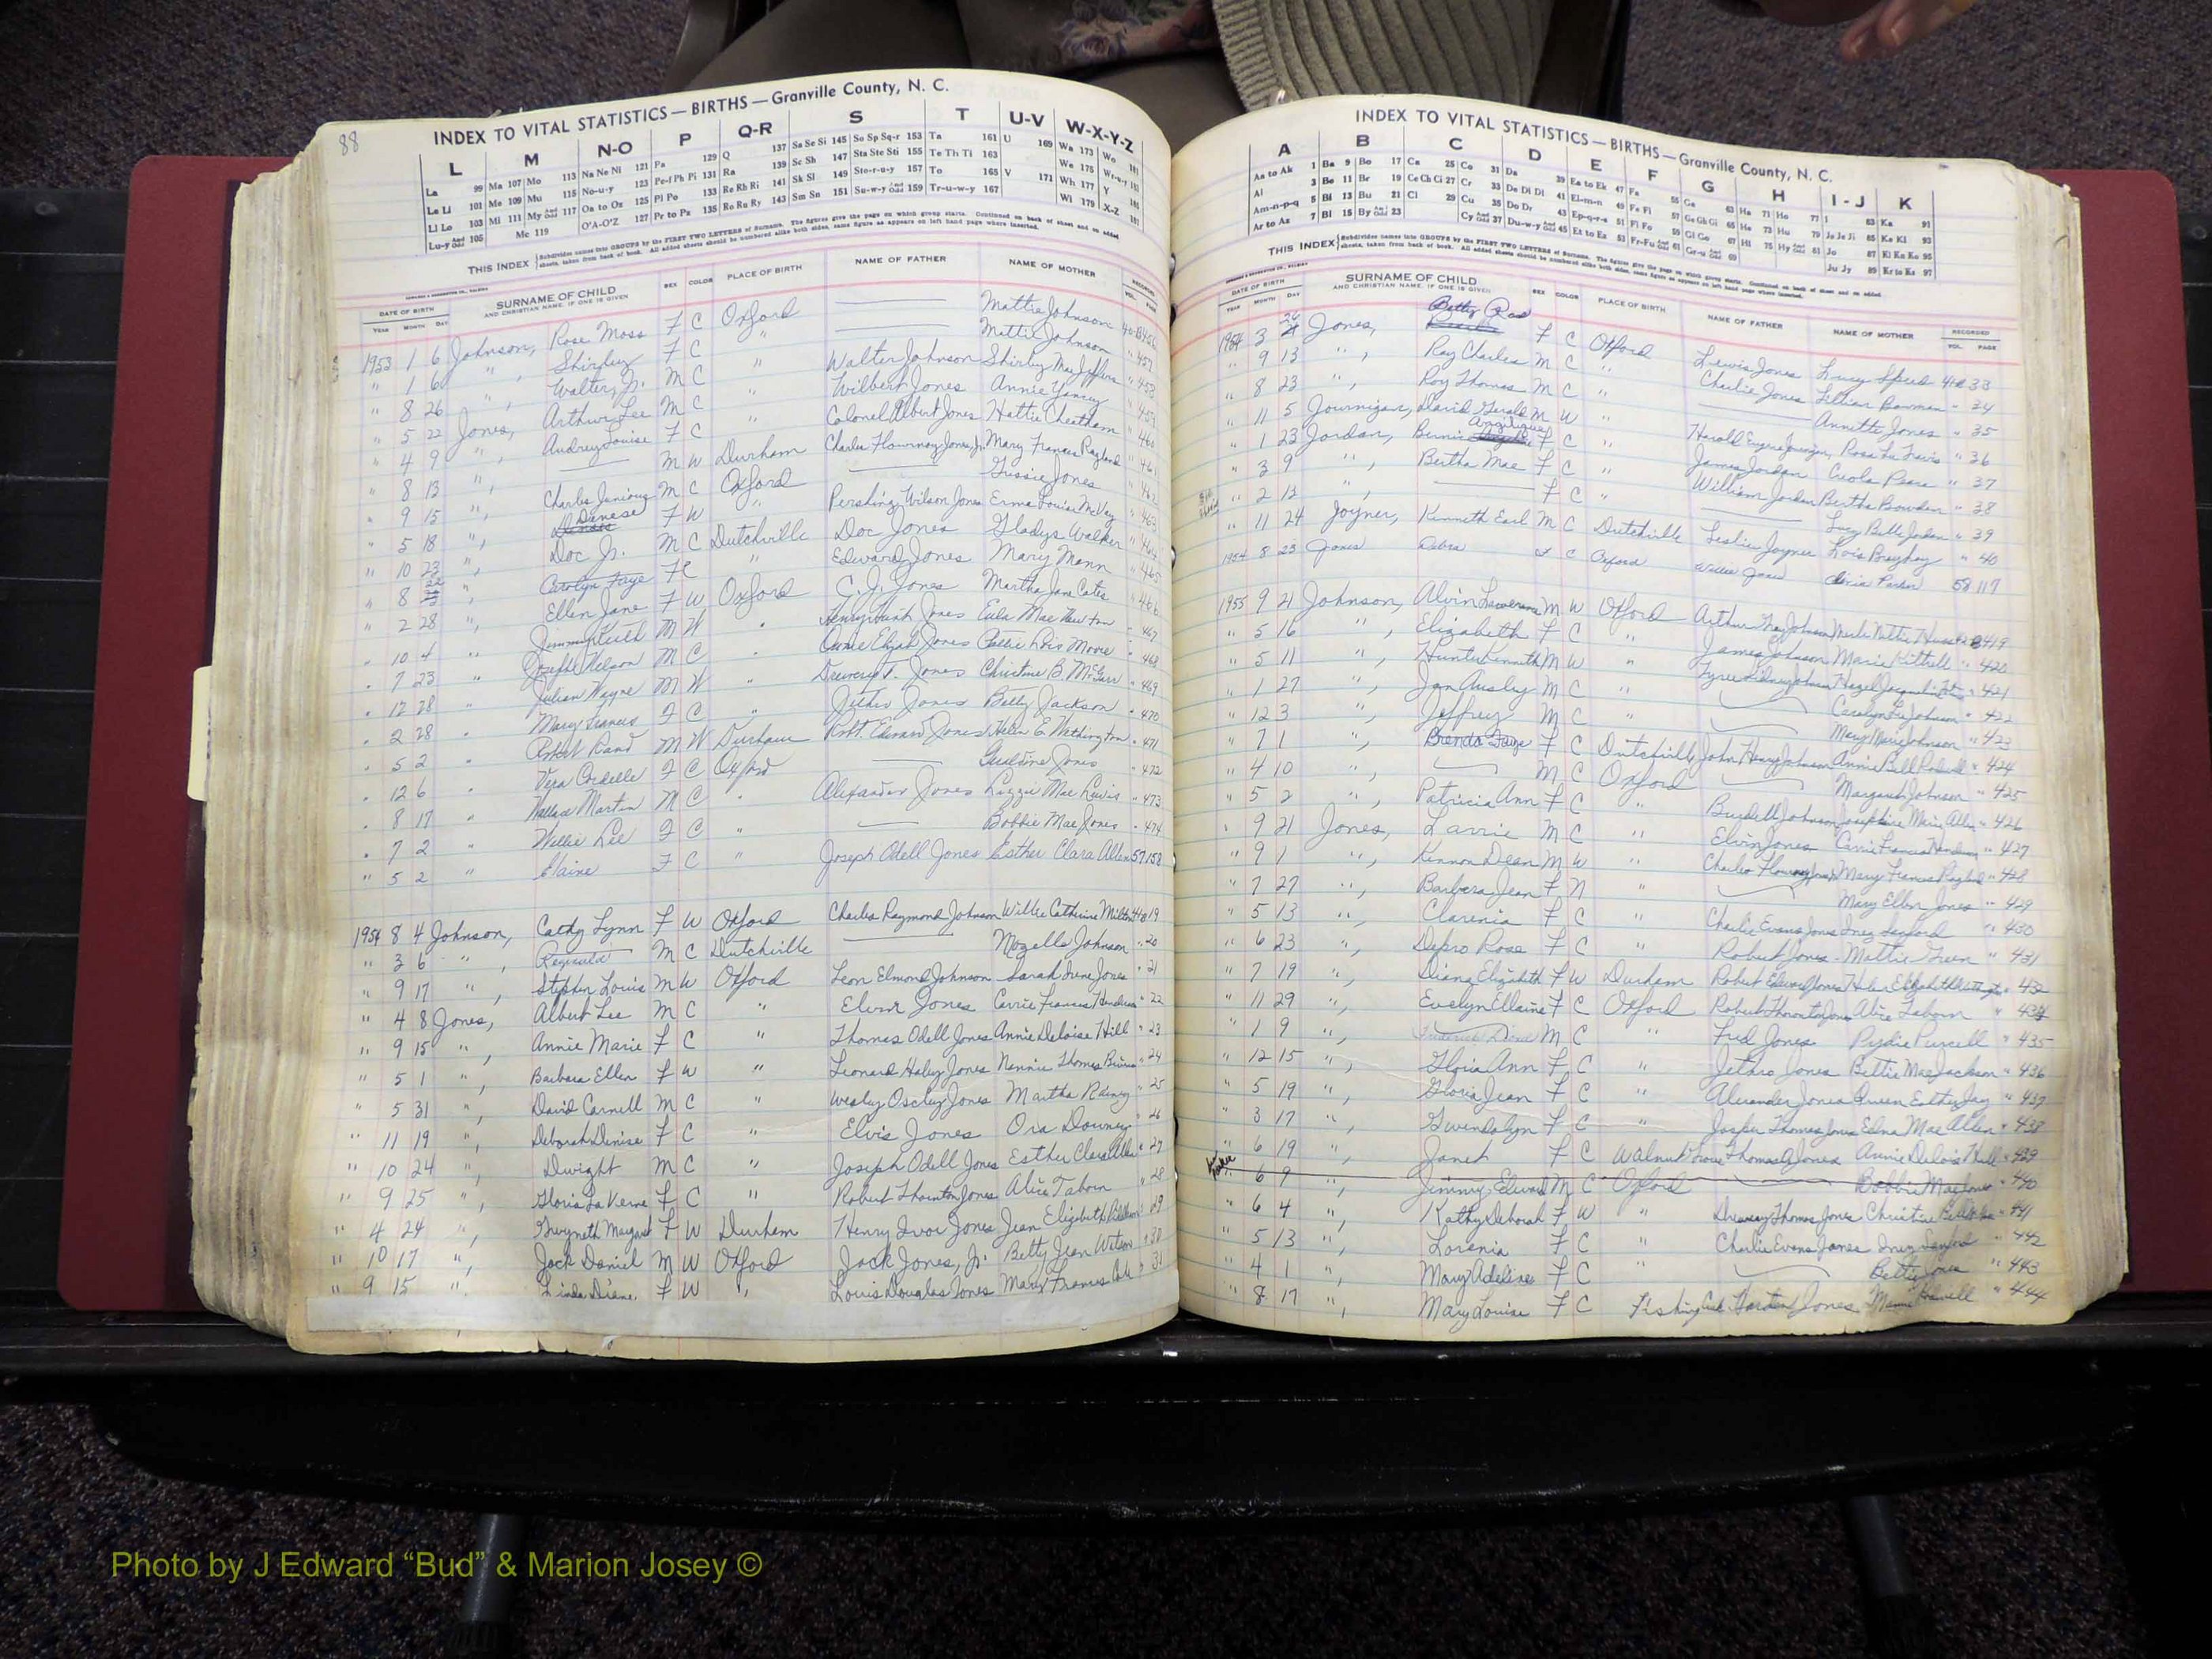 88
INDEX TO VITAL STATISTICS — BIRTHS — Granville County, N. C.
L M N-O P Q-R S T U-V W-X-Y-Z
La 99 Ma 107 Mo 113 Na Ne Ni 121 Pa 129 Q 137 Sa Se Si 145 So Sp Sq-r 153 Ta 161 U 169 Wa 173 Wo 181
Le Li 101 Me 109 Mu 115 No-u-y 123 Pe-f Ph Pi 131 Ra 139 Sc Sh 147 Sta Ste Sti 155 Te Th Ti 163 We 175
Ll Lo 103 Mi 111 My And Odd 117 Oa to Oz 125 Pl Po 133 Re Rh Ri 141 Sk Sl 149 Sto-r-u-y 157 To 165 V 171 Wh 177 Y
Lu-y And Odd 105 Mc 119 O'A-O'Z 127 Pr to Pz 135 Ro Ru Ry 143 Sm Sn 151 Su-w-y And Odd 159 Tr-u-w-y 167 Wi 179 X-Z
THIS INDEX Subdivides names into GROUPS by the FIRST TWO LETTERS of Surname. The figures give the page on which group starts. Continued on back of sheet and on added
sheets, taken from back of book. All added sheets should be numbered alike both sides, same figure as appears on left hand page where inserted.
DATE OF BIRTH SURNAME OF CHILD SEX COLOR PLACE OF BIRTH NAME OF FATHER NAME OF MOTHER RECORDED
YEAR MONTH DAY AND CHRISTIAN NAME, IF ONE IS GIVEN VOL. PAGE
1953 1 6 Johnson, Rose Moss F C Oxford Mattie Johnson
" 1 6 " , Shirley F C " Mattie Johnson " 457
" 8 26 " , Walter, Jr. M C " Walter Johnson Shirley Mae Jeffers " 458
" 5 22 Jones, Arthur Lee M C " Wilbert Jones Annie Yancey " 459
" 4 9 " , Audrey Louise F C " Colonel Albert Jones Hattie Cheatham " 460
" 8 13 " , M W Durham Charles Flournoy Jones, Jr. Mary Frances Ragland " 461
" 9 15 " , Charles Junious M C Oxford Gussie Jones " 462
" 5 18 " , Denese F W " Pershing Wilson Jones Erma Louise McVay " 463
" 10 23 " , Doc Jr. M C Dutchville Doc Jones Gladys Walker " 464
" 8 22 " , Carolyn Faye F C " Edward Jones Mary Mann " 465
" 2 28 " , Ellen Jane F W Oxford C. J. Jones Martha Jane Cates " 466
" 10 4 " M W " Henry Jones Eula Mae Newton " 467
" 7 23 " Joseph Nelson M C " Jones Callie Lois Moore " 468
" 12 28 " Julian Wayne M W " Drewery T. Jones Christine B. " 469
" 2 28 " Mary Francis F C " Jether Jones Betty Jackson " 470
" 5 2 " Robert Rand M W Durham Robt. Edward Jones Helen E. Wethington " 471
" 12 6 " Vera Cordelle F C Oxford Geraldine Jones " 472
" 8 17 " Wallace Martin M C " Alexander Jones Lizzie Mae Lewis " 473
" 7 2 " Willie Lee F C " Bobbie Mae Jones " 474
" 5 2 " Elaine F C " Joseph Odell Jones Esther Clara Allen 57 158
1954 8 4 Johnson, Cathy Lynn F W Oxford Charles Raymond Johnson Willie Catherine Milton 19
" 3 6 " , Reginald M C Dutchville Mozelle Johnson " 20
" 9 17 " , Stephen Louis M W Oxford Leon Elmond Johnson Sarah Irene Jones " 21
" 4 8 Jones, Albert Lee M C " Elvin Jones Carrie Frances " 22
" 9 15 " , Annie Marie F C " Thomas Odell Jones Annie Deloise Hill " 23
" 5 1 " , Barbara Ellen F W " Leonard Haley Jones Nannie Thomas " 24
" 5 31 " , David Carnell M C " Wesley Jones Martha Rainey " 25
" 11 19 " , Deborah Denise F C " Elvis Jones Ora Downey " 26
" 10 24 " , Dwight M C " Joseph Odell Jones Esther Clara Allen " 27
" 9 25 " , Gloria La Verne F C " Robert Thornton Jones Alice Taborn " 28
" 4 24 " , Gwyneth Margaret F W Durham Henry Ivor Jones Jean Elizabeth " 29
" 10 17 " , Jack Daniel M W Oxford Jack Jones, Jr. Betty Jean Watson " 30
" 9 15 " , Linda Diane F W " Louis Douglas Jones Mary Frances " 31
INDEX TO VITAL STATISTICS — BIRTHS — Granville County, N. C.
A B C D E F G H I - J K
Aa to Ak 1 Ba 9 Bo 17 Ca 25 Co 31 Da 39 Ea to Ek 47 Fa 55 Ga 63 Ha 71 Ho 77 I 83 Ka 91
Al 3 Be 11 Br 19 Ce Ch Ci 27 Cr 33 De Di Dl 41 El-m-n 49 Fe Fi 57 Ge Gh Gi 65 He 73 Hu 79 Ja Je Ji 85 Ke Kl 93
Am-n-p-q 5 Bi 13 Bu 21 Cl 29 Cu 35 Do Dr 43 Ep-q-r-s 51 Fl Fo 59 Gl Go 67 Hi 75 Hy And Odd 81 Jo 87 Ki Kn Ko 95
Ar to Az 7 Bl 15 By And Odd 23 Cy And Odd 37 Du-w-y And Odd 45 Et to Ez 53 Fr-Fu And Odd 61 Gr-u And Odd 69 Ju Jy 89 Kr to Kz 97
THIS INDEX Subdivides names into GROUPS by the FIRST TWO LETTERS of Surname. The figures give the page on which group starts. Continued on back of sheet and on added
sheets, taken from back of book. All added sheets should be numbered alike both sides, same figure as appears on left hand page where inserted.
DATE OF BIRTH SURNAME OF CHILD SEX COLOR PLACE OF BIRTH NAME OF FATHER NAME OF MOTHER RECORDED
YEAR MONTH DAY AND CHRISTIAN NAME, IF ONE IS GIVEN VOL. PAGE
1954 3 26 Jones, Betty Rae F C Oxford Lewis Jones Lucy Speed 33
" 9 13 " , Ray Charles M C " Charlie Jones Lillian Bowman " 34
" 8 23 " , Roy Thomas M C " Annette Jones " 35
" 11 5 Journigan, David Gerald M W " Harold Eugene Journigan, Rosa Lee Travis " 36
" 1 23 Jordan, Bernice Angelique F C " James Jordan Creola Pears " 37
" 3 9 " , Bertha Mae F C " William Jordan Bertha Bowden " 38
" 2 12 " , F C " Lucy Belle Jordan " 39
" 11 24 Joyner, Kenneth Earl M C Dutchville Leslie Joyner Lois " 40
1954 8 23 Jones Debra F C Oxford Willie Jones Parker 58 117
1955 9 21 Johnson, Alvin Lawerence M W Oxford Arthur Johnson 419
" 5 16 " , Elizabeth F C " James Johnson Marie Kittrell " 420
" 5 11 " , Hunter Kenneth M W " Tyree Sidney Johnson Hazel Jacqueline " 421
" 1 27 " , Jan Ausby M C " Carolyn Johnson " 422
" 12 3 " , Jeffrey M C " Mary Marie Johnson " 423
" 7 1 " , Brenda Faye F C Dutchville John Henry Johnson Annie Bell " 424
" 4 10 " , M C Oxford Margaret Johnson " 425
" 5 2 " , Patricia Ann F C " Burdell Johnson Josephine Marie Allen " 426
" 9 21 Jones, Larrie M C " Elvin Jones Carrie Frances " 427
" 9 1 " , Kennon Dean M W " Charles Flournoy Jones Mary Frances Ragland " 428
" 7 27 " , Barbara Jean F N " Mary Ellen Jones " 429
" 5 13 " , Clarenia F C " Charlie Evans Jones Inez Sanford " 430
" 6 23 " , Debro Rose F C " Robert Jones Mattie Green " 431
" 7 19 " , Diana Elizabeth F W Durham Robert Edward Jones Helen Elizabeth " 432
" 11 29 " , Evelyn Ellaine F C Oxford Robert Thornton Jones Alice Taborn " 434
" 1 9 " , M C " Fred Jones Purcell " 435
" 12 15 " , Gloria Ann F C " Jethro Jones Bettie Mae Jackson " 436
" 5 19 " , Gloria Jean F C " Alexander Jones Queen Esther Jay " 437
" 3 17 " , Gwendolyn F C " Jasper Thomas Jones Edna Mae Allen " 438
" 6 19 " , Janet F C Walnut Grove Thomas O Jones Annie Delois Hill " 439
" 6 9 " , Jimmy Edward M C Oxford Bobbie Mae Jones " 440
" 6 4 " , Kathy Deborah F W " Drewery Thomas Jones Christine " 441
" 5 13 " , Lorenia F C " Charlie Evans Jones Inez Sanford " 442
" 4 1 " , Mary Adeline F C " Bettie Jones " 443
" 8 17 " , Mary Louise F C Fishing Creek Jones " 444
Photo by J Edward “Bud” & Marion Josey ©